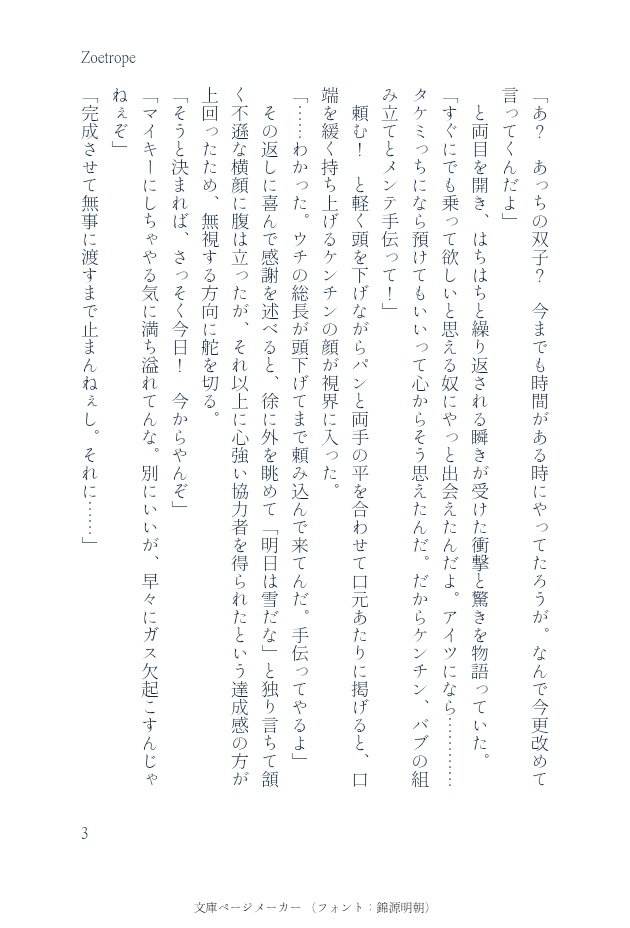 Zoetrope
「あ？　あっちの双子？　今までも時間がある時にやってたろうが。なんで今更改めて
言ってくんだよ」
　と両目を開き、はちはちと繰り返される瞬きが受けた衝撃と驚きを物語っていた。
「すぐにでも乗って欲しいと思える奴にやっと出会えたんだよ。アイツになら…………
タケミっちになら預けてもいいって心からそう思えたんだ。だからケンチン、バブの組
み立てとメンテ手伝って！」
　頼む！　と軽く頭を下げながらパンと両手の平を合わせて口元あたりに掲げると、口
端を緩く持ち上げるケンチンの顔が視界に入った。
「……わかった。ウチの総長が頭下げてまで頼み込んで来てんだ。手伝ってやるよ」
　その返しに喜んで感謝を述べると、徐に外を眺めて「明日は雪だな」と独り言ちて頷
く不遜な横顔に腹は立ったが、それ以上に心強い協力者を得られたという達成感の方が
上回ったため、無視する方向に舵を切る。
「そうと決まれば、さっそく今日！　今からやんぞ」
「マイキーにしちゃやる気に満ち溢れてんな。別にいいが、早々にガス欠起こすんじゃ
ねぇぞ」
「完成させて無事に渡すまで止まんねぇし。それに……」
3
文庫ページメーカー （フォント：錦源明朝）